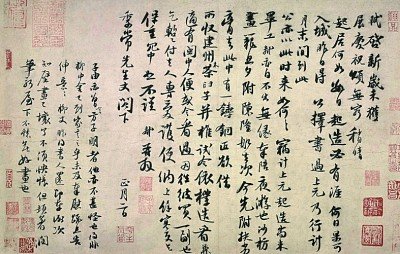 軾啓新歲未獲
展慶祝頌無窮稍晴
起居何如數日起造必有涯何日果可
入城昨日得公擇書過上元乃行計
月末間到此
公亦以此時來如何竊計上元起造尚未
畢工軾亦自不出無緣奉陪夜遊也沙枋
畫籠旦夕附陳隆船去次今先附扶劣
膏去此中有一鑄銅匠欲借
所收建州木茶臼子并椎試令依樣造看兼
適有閩中人便或令看過因往彼買一副也
乞暫付去人專愛護便納上餘寒更乞
保重冗中恕不謹軾再拜
季常先生丈閣下 正月二日
子由亦曾言方子明者他亦不甚怪也得非
柳中舍已到家言之乎未及奉慰疏且告
伸意伸意柳丈昨得書人還即奉謝次
知壁畫已壞了不須怏怏但頓著潤
筆新屋下不愁無好畫也